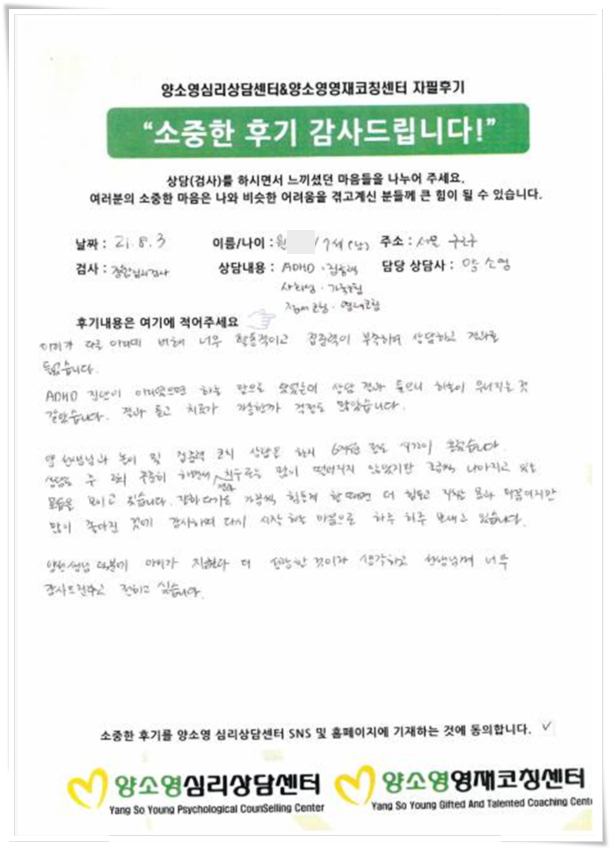 양소영심리상담센터&양소영영재코칭센터 자필후기
“소중한 후기 감사드립니다!”
상담(검사)를 하시면서 느끼셨던 마음들을 나누어 주세요.
여러분의 소중한 마음은 나와 비슷한 어려움을 겪고계신 분들께 큰 힘이 될 수 있습니다.
날짜 : 21. 8. 3 이름/나이 : 원 /7세(남) 주소 : 서울 구로구
검사 : 종합심리검사 상담내용 : ADHD · 집중력 담당 상담사 : 양소영
사회성 ·
후기내용은 여기에 적어주세요
아이가 다른 아이에 비해 너무 활동적이고 집중력이 부족하여 상담하고 결과를
들었습니다.
ADHD 진단이 아니었으면 하는 맘으로 왔었는데 상담 결과 들으니 하늘이 무너지는 것
같았습니다. 결과 듣고 치료가 가능한가 걱정도 많았습니다.
양 선생님과 놀이 및 집중력 코칭 상담을 한지 6개월 정도 시간이 흘렀습니다.
상담을 주 2회 꾸준히 하면서 많이 떨어지진 않았지만 조금씩 나아지고 있는
모습을 보이고 있습니다. 가끔씩 힘들게 할때면 더 힘들고
많이 좋아진 것에 감사하며 다시 시작하는 마음으로 하루 하루 보내고 있습니다.
양선생님 덕분에 아이가 지금보다 더 것이라 생각하고 선생님께 너무
감사드린다고 전하고 싶습니다.
소중한 후기를 양소영 심리상담센터 SNS 및 홈페이지에 기재하는 것에 동의합니다. ✓
양소영심리상담센터 양소영영재코칭센터
Yang So Young Psychological CounSelling Center Yang So Young Gifted And Talented Coaching Cent